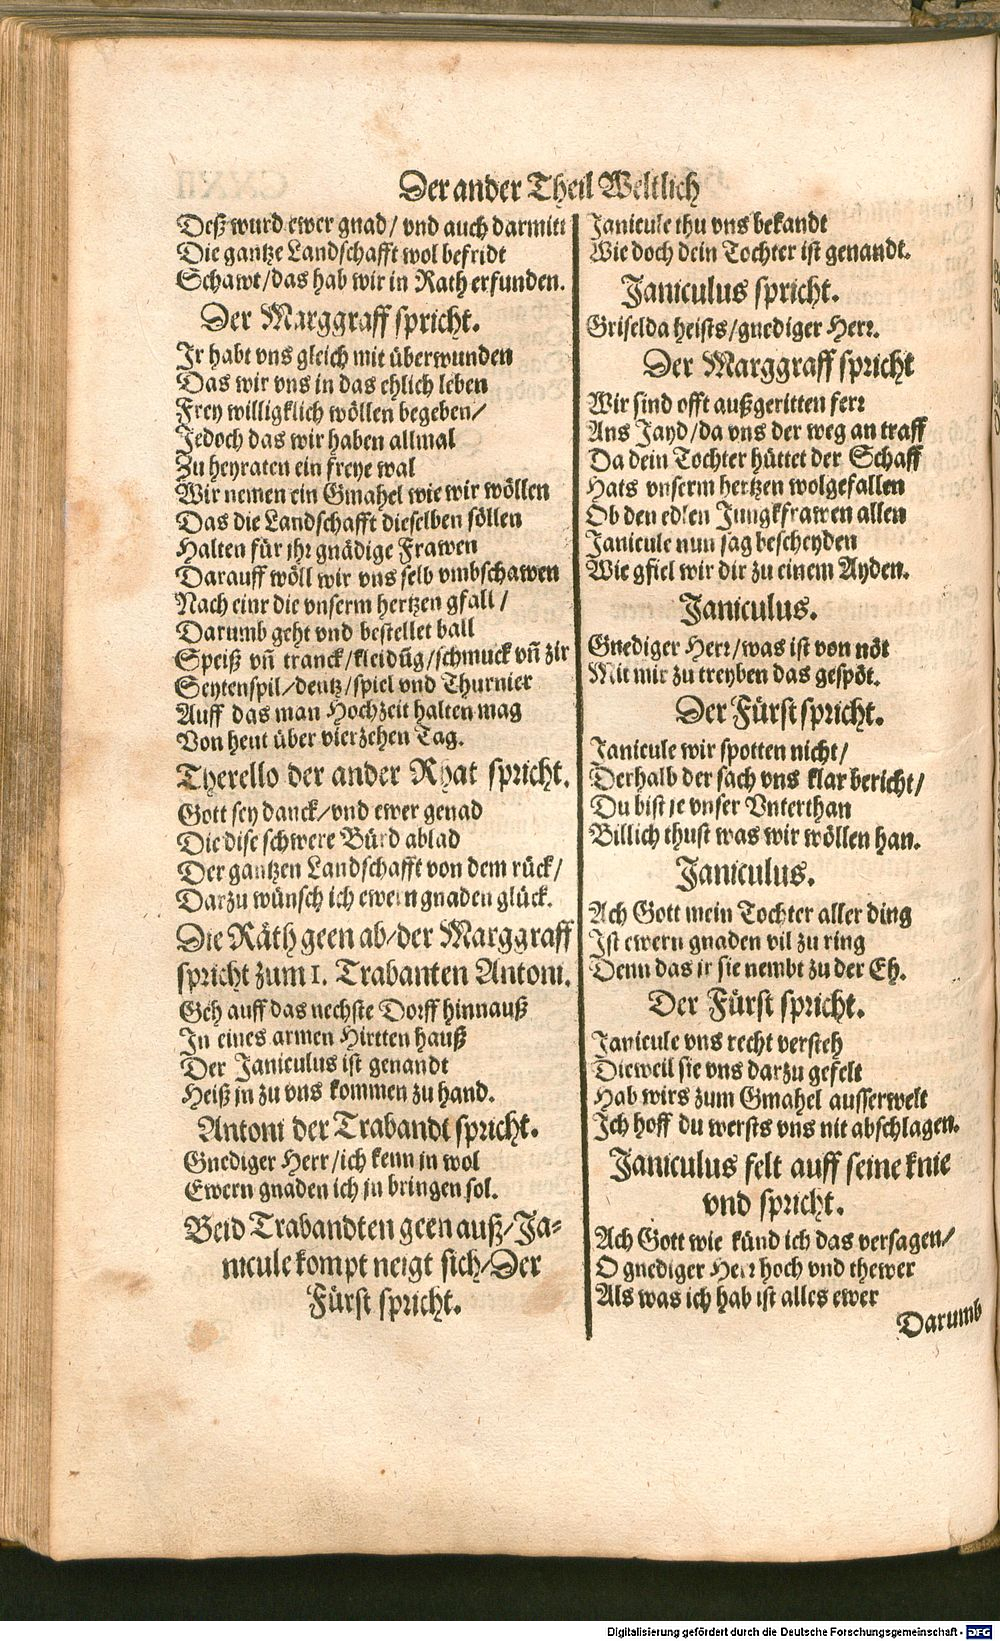 Der ander Theil Weltlich
Deß wurd ewer gnad/ vnd auch darmitt
Die gantze Landschafft wol befridt
Schawt/das hab wir in Rath erfunden.
Der Marggraff spricht.
Ir habt vns gleich mit überwunden
Das wir vns in das ehlich leben
Frey willigklich wöllen begeben/
Jedoch das wir haben allmal
Zu heyraten ein freye wal
Wir nemen ein Gmahel wie wir wöllen
Das die Landschafft dieselben söllen
Halten für jhr gnädige Frawen
Darauff wöll wir vns selb vmbschawen
Nach einr die vnserm hertzen gfall/
Darumb geht vnd bestellet ball
Speiß vñ tranck/kleidũg/schmuck vñ zir
Seytenspil/dentz/spiel vnd Thurnier
Auff das man Hochzeit halten mag
Von heut über vierzehen Tag.
Therello der ander Rhat spricht.
Gott sey danck/vnd ewer genad
Die dise schwere Bürd ablad
Der gantzen Landschafft von dem rück/
Darzu wünsch ich ewern gnaden glück.
Die Räth geen ab/der Marggraff
spricht zum 1. Trabanten Antoni.
Geh auff das nechste Dorff hinnauß
In eines armen Hirtten hauß
Der Janiculus ist genandt
Heiß jn zu vns kommen zu hand.
Antoni der Trabandt spricht.
Gnediger Herr/ich kenn jn wol
Ewern gnaden ich jn bringen sol.
Beid Trabandten geen auß/Ja-
nicule kompt neigt sich/Der
Fürst spricht.
Janicule thu vns bekandt
Wie doch dein Tochter ist genandt.
Janiculus spricht.
Griselda heists/gnediger Herr.
Der Marggraff spricht
Wir sind offt außgeritten ferr
Ans Jayd/da vns der weg an traff
Da dein Tochter hüttet der Schaff
Hats vnserm hertzen wolgefallen
Ob den edlen Jungkfrawen allen
Janicule nun sag bescheyden
Wie gfiel wir dir zu einem Ayden.
Janiculus.
Gnediger Herr/was ist von nöt
Mit mir zu treyben das gespöt.
Der Fürst spricht.
Janicule wir spotten nicht/
Derhalb der sach vns klar bericht/
Du bist je vnser Vnterthan
Billich thust was wir wöllen han.
Janiculus.
Ach Gott mein Tochter aller ding
Ist ewern gnaden vil zu ring
Denn das jr sie nembt zu der Eh.
Der Fürst spricht.
Janicule vns recht versteh
Dieweil sie vns darzu gefelt
Hab wirs zum Gmahel ausserwelt
Ich hoff du wersts vns nit abschlagen.
Janiculus felt auff seine knie
vnd spricht.
Ach Gott wie künd ich das versagen/
O gnediger Herr hoch vnd thewer
Als was ich hab ist alles ewer
Darumb
Digitalisierung gefördert durch die Deutsche Forschungsgemeinschaft - DFG